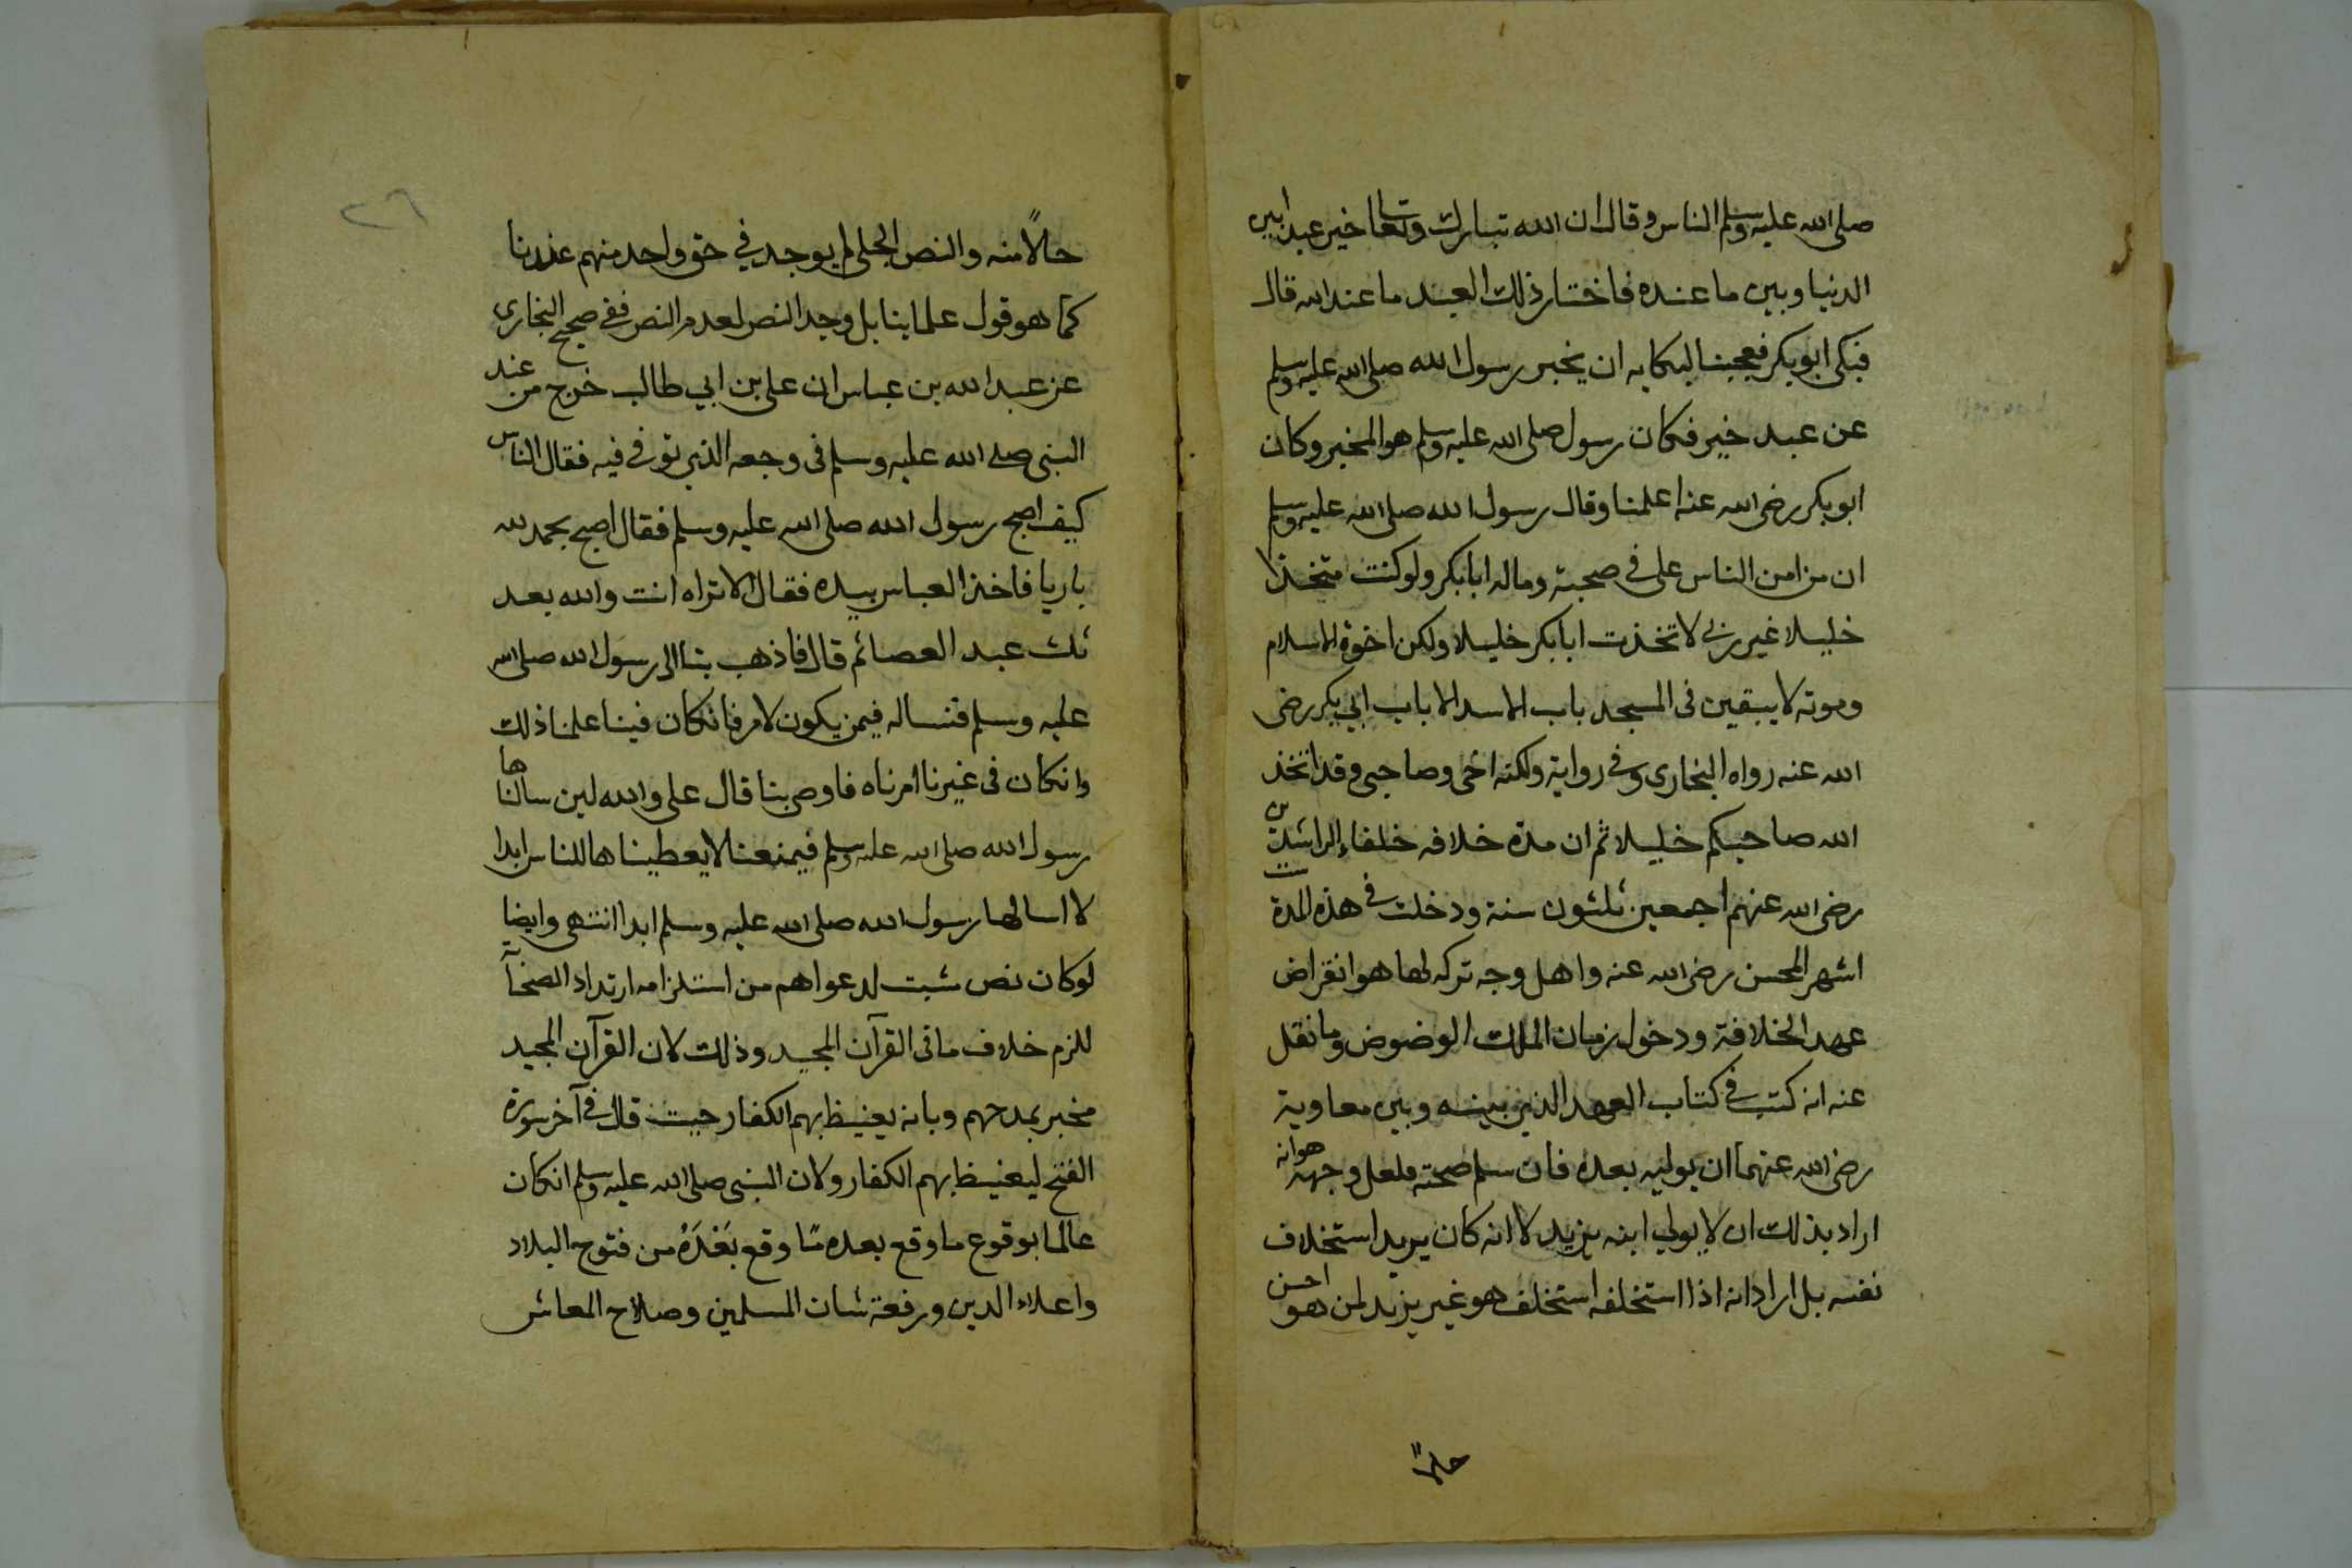 صلى الله عليه وسلم الناس وقال ان الله تبارك وتعالى خير عبدا بين
الدنيا وبين ما عنده فاختار ذلك العبد ما عند الله قال
فبكى ابو بكر فعجبنا لبكايه ان يخبر رسول الله صلى الله عليه وسلم
عن عبد خير فكان رسول صلى الله عليه وسلم هو المخير وكان
ابو بكر رضى الله عنه اعلمنا وقال رسول الله صلى الله عليه وسلم
ان من امن الناس على فى صحبته وماله ابا بكر ولو كنت متخذا
خليلا غير ربى لاتخذت ابا بكر خليلا ولكن اخوة الاسلام
وموته لا يبقين فى المسجد باب الا سد الا باب ابي بكر رضى
الله عنه رواه البخارى وفى رواية ولكنه اخى وصاحبى وقد اتخذ
الله صاحبكم خليلا ثم ان مدة خلافه خلفاء الراشدين
رضى الله عنهم اجمعين ثلثون سنة ودخلت فى هذه المدة
اشهر الحسن رضى الله عنه واهل وجه تركه لها هو انقراض
عهد الخلافة ودخول زمان الملك الوضوض وما نقل
عنه انه كتب فى كتاب العهد الذين بينه وبين معاوية
رضى الله عنهما ان يوليه بعده فان سلم صحته فلعل وجهه هو انه
اراد بذلك ان لا يولي ابنه يزيد لا انه كان يريد استخلاف
نفسه بل اراد انه اذا استخلفه استخلف هو غير يزيد لمن هو احسن
حالاً
٢٦
حالاً منه والنص الجلى لم يوجد في حق واحد منهم عندنا
كما هو قول علماينا بل وجد النص لعدم النص ففى صحيح البخارى
عن عبد الله بن عباس ان على بن ابي طالب خرج من عند
النبى صلى الله عليه وسلم فى وجعه الذي توفى فيه فقال الناس
كيف اصبح رسول الله صلى الله عليه وسلم فقال اصبح بحمد لله
باريا فاخذ العباس بيده فقال الا تراه انت والله بعد
ثلث عبد العصائم قال فاذهب بنا الى رسول الله صلى الله
عليه وسلم فنساله فيمن يكون لامر فانكان فينا علمنا ذلك
وانكان فى غيرنا امرناه فاوصى بنا قال على والله لين سالناها
رسول الله صلى الله عليه وسلم فيمنعنا لا يعطيناها للناس ابدا
لا اسالها رسول الله صلى الله عليه وسلم ابدا انتهى وايضا
لوكان نص ثبت لدعواهم من استلزامه ارتداد الصحابة
للزم خلاف ما فى القرآن المجيد وذلك لان القرآن المجيد
مخبر بمدحهم وبانه يغيظ بهم الكفار حيث قال فى آخر سورة
الفتح ليغيظ بهم الكفار ولان النبى صلى الله عليه وسلم انكان
عالما بوقوع ما وقع بعده مما وقع بعده من فتوح البلاد
واعلاء الدين ورفعة شان المسلمين وصلاح المعاش